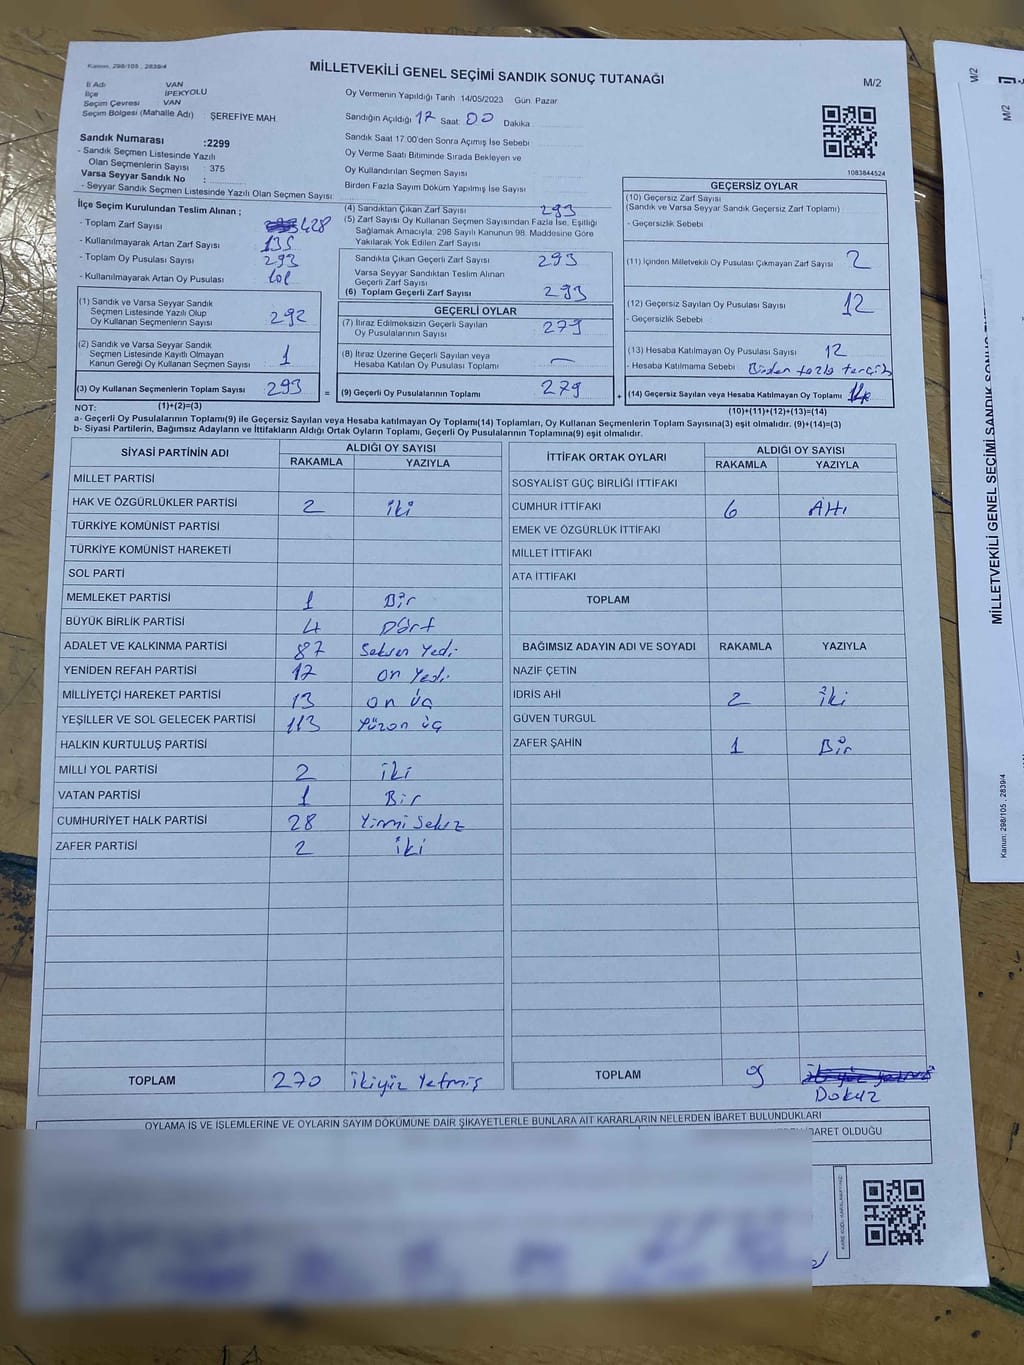 Kanun: 298/105 , 2839/4
MİLLETVEKİLİ GENEL SEÇİMİ SANDIK SONUÇ TUTANAĞI
M/2
İl Adı VAN
İlçe İPEKYOLU
Seçim Çevresi VAN
Seçim Bölgesi (Mahalle Adı) : ŞEREFİYE MAH.
Oy Vermenin Yapıldığı Tarih 14/05/2023 Gün: Pazar
Sandığın Açıldığı 17 Saat 00 Dakika
Sandık Saat 17:00'den Sonra Açımış İse Sebebi
Oy Verme Saati Bitiminde Sırada Bekleyen ve
Oy Kullandırılan Seçmen Sayısı
Birden Fazla Sayım Döküm Yapılmış İse Sayısı
1083844524
Sandık Numarası :2299
- Sandık Seçmen Listesinde Yazılı
Olan Seçmenlerin Sayısı : 375
Varsa Seyyar Sandık No :
- Seyyar Sandık Seçmen Listesinde Yazılı Olan Seçmen Sayısı:
İlçe Seçim Kurulundan Teslim Alınan ;
- Toplam Zarf Sayısı 428
- Kullanılmayarak Artan Zarf Sayısı 135
- Toplam Oy Pusulası Sayısı 293
- Kullanılmayarak Artan Oy Pusulası
(1) Sandık ve Varsa Seyyar Sandık
Seçmen Listesinde Yazılı Olup
Oy Kullanan Seçmenlerin Sayısı 292
(2) Sandık ve Varsa Seyyar Sandık
Seçmen Listesinde Kayıtlı Olmayan
Kanun Gereği Oy Kullanan Seçmen Sayısı 1
(3) Oy Kullanan Seçmenlerin Toplam Sayısı 293
(1)+(2)=(3)
(4) Sandıktan Çıkan Zarf Sayısı 293
(5) Zarf Sayısı Oy Kullanan Seçmen Sayısından Fazla İse, Eşitliği
Sağlamak Amacıyla, 298 Sayılı Kanunun 98. Maddesine Göre
Yakılarak Yok Edilen Zarf Sayısı
Sandıkta Çıkan Geçerli Zarf Sayısı 293
Varsa Seyyar Sandıktan Teslim Alınan
Geçerli Zarf Sayısı
(6) Toplam Geçerli Zarf Sayısı 293
GEÇERLİ OYLAR
(7) İtiraz Edilmeksizin Geçerli Sayılan
Oy Pusulalarının Sayısı 279
(8) İtiraz Üzerine Geçerli Sayılan veya
Hesaba Katılan Oy Pusulası Toplamı —
= (9) Geçerli Oy Pusulalarının Toplamı 279
GEÇERSİZ OYLAR
(10) Geçersiz Zarf Sayısı
(Sandık ve Varsa Seyyar Sandık Geçersiz Zarf Toplamı)
- Geçersizlik Sebebi
(11) İçinden Milletvekili Oy Pusulası Çıkmayan Zarf Sayısı 2
(12) Geçersiz Sayılan Oy Pusulası Sayısı 12
- Geçersizlik Sebebi
(13) Hesaba Katılmayan Oy Pusulası Sayısı 12
- Hesaba Katılmama Sebebi Birden fazla tercih
+ (14) Geçersiz Sayılan veya Hesaba Katılmayan Oy Toplamı 14
(10)+(11)+(12)+(13)=(14)
NOT:
a- Geçerli Oy Pusulalarının Toplamı(9) ile Geçersiz Sayılan veya Hesaba katılmayan Oy Toplam(14) Toplamları, Oy Kullanan Seçmenlerin Toplam Sayısına(3) eşit olmalıdır. (9)+(14)=(3)
b- Siyasi Partilerin, Bağımsız Adayların ve İttifakların Aldığı Ortak Oyların Toplamı, Geçerli Oy Pusulalarının Toplamına(9) eşit olmalıdır.
SİYASİ PARTİNİN ADI ALDIĞI OY SAYISI
RAKAMLA YAZIYLA
MİLLET PARTİSİ
HAK VE ÖZGÜRLÜKLER PARTİSİ 2 iki
TÜRKİYE KOMÜNİST PARTİSİ
TÜRKİYE KOMÜNİST HAREKETİ
SOL PARTİ
MEMLEKET PARTİSİ 1 Bir
BÜYÜK BİRLİK PARTİSİ 4 Dört
ADALET VE KALKINMA PARTİSİ 87 Seksen Yedi
YENİDEN REFAH PARTİSİ 17 on Yedi
MİLLİYETÇİ HAREKET PARTİSİ 13 on üç
YEŞİLLER VE SOL GELECEK PARTİSİ 113 Yüzon üç
HALKIN KURTULUŞ PARTİSİ
MİLLİ YOL PARTİSİ 2 iki
VATAN PARTİSİ 1 Bir
CUMHURİYET HALK PARTİSİ 28 Yirmi Sekiz
ZAFER PARTİSİ 2 iki
TOPLAM 270 ikiyüz Yetmiş
İTTİFAK ORTAK OYLARI ALDIĞI OY SAYISI
RAKAMLA YAZIYLA
SOSYALİST GÜÇ BİRLİĞİ İTTİFAKI
CUMHUR İTTİFAKI 6 Altı
EMEK VE ÖZGÜRLÜK İTTİFAKI
MİLLET İTTİFAKI
ATA İTTİFAKI
TOPLAM
BAĞIMSIZ ADAYIN ADI VE SOYADI RAKAMLA YAZIYLA
NAZİF ÇETİN
İDRİS AHİ 2 iki
GÜVEN TURGUL
ZAFER ŞAHİN 1 Bir
TOPLAM 9
Dokuz
OYLAMA İŞ VE İŞLEMLERİNE VE OYLARIN SAYIM DÖKÜMÜNE DAİR ŞİKAYETLERLE BUNLARA AİT KARARLARIN NELERDEN İBARET BULUNDUKLARI
İBARET OLDUĞU
M/2
M/2
MİLLETVEKİLİ GENEL SEÇİMİ SANDIK SONUÇ
Kanun: 298/105 , 2839/4